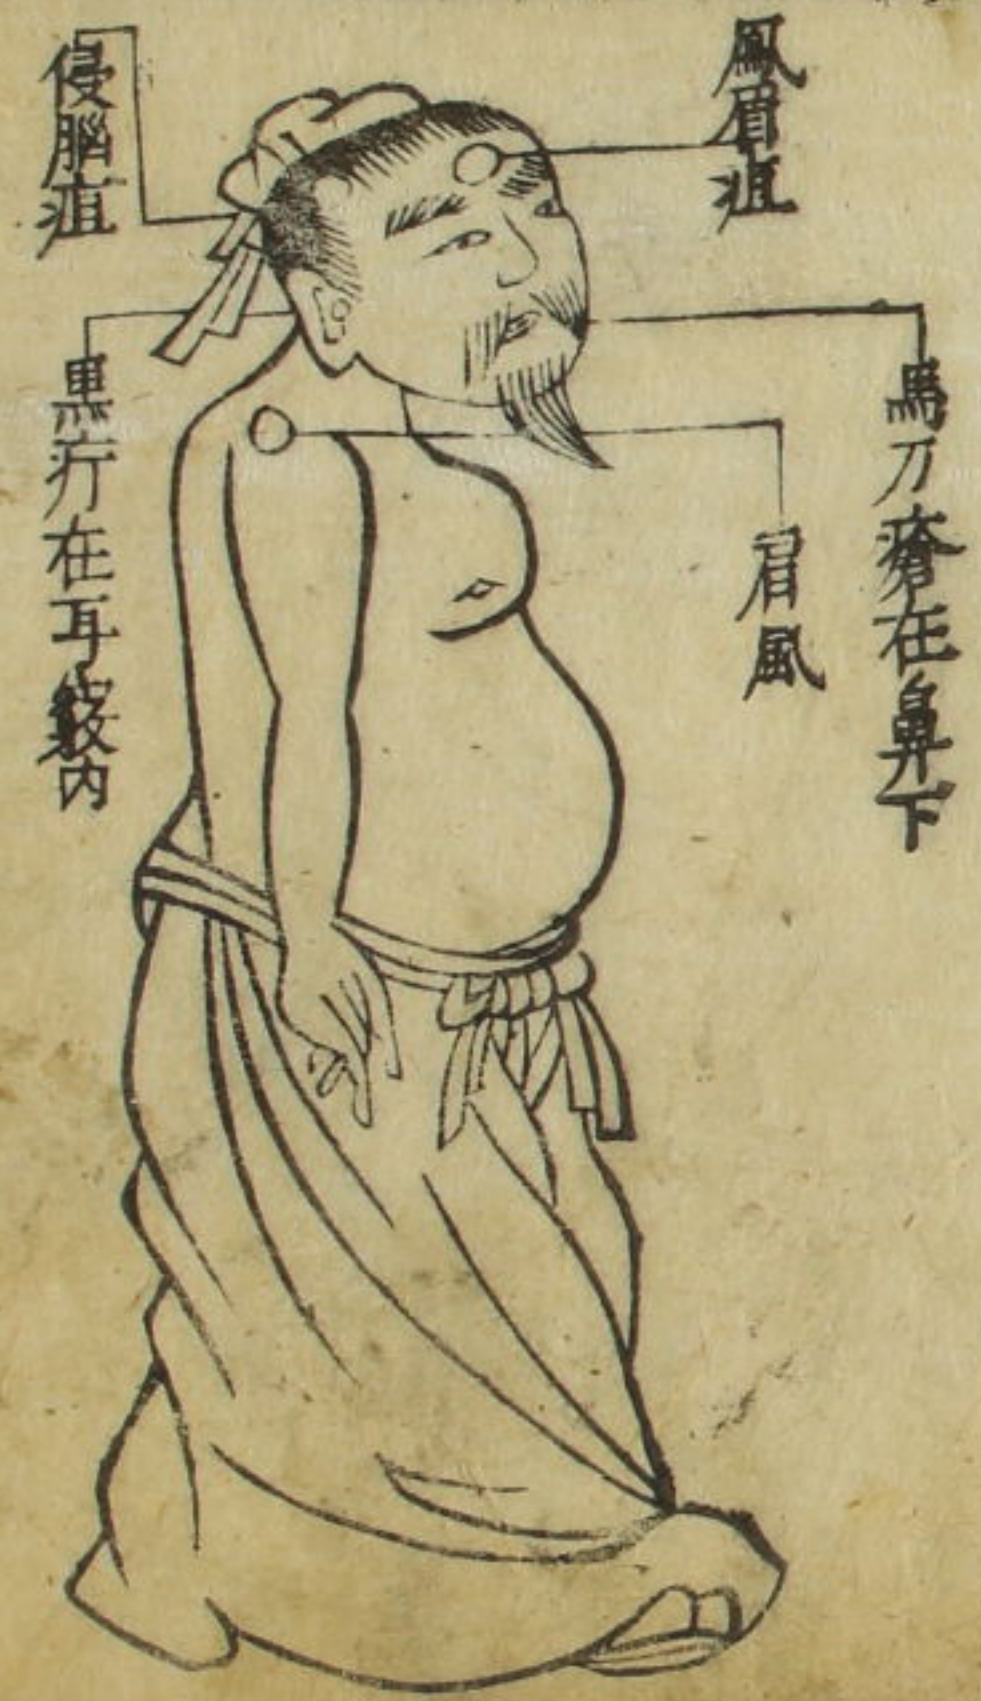 鳳眉疽
馬刀瘡在鼻下
肩風
侵腦疽
黒疔在耳竅内